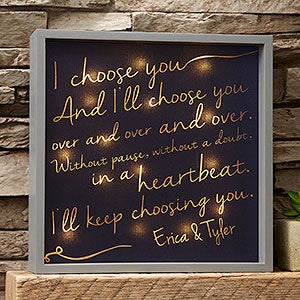 I choose you
And I'll choose you
over and over and over.
Without pause, without a doubt.
in a heartbeat.
I'll keep choosing you.
Erica & Tyler